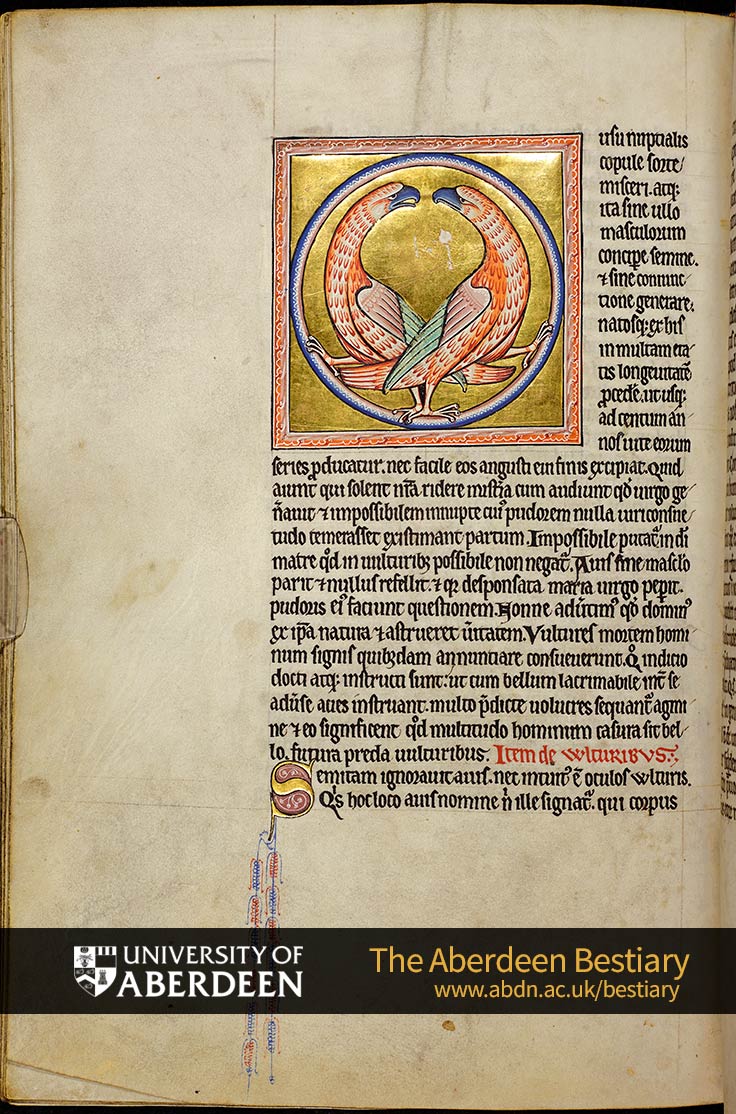 usu nuptialis
copule sorte
misceri. atq;
ita sine ullo
masculorum
concipe semine.
⁊ sine coniunc
tione generare.
natosq; ex his
in multam eta
tis longeuitatē
ꝓcedē. ut usq;
ad centum an
nos uite eorum
series ꝓducatur. nec facile eos angusti eui finis excipiat. Quid
aiunt qui solent nr̄a ridere mist̄ia cum audiunt qd̄ uirgo ge
n̄auit ⁊ impossibilem innupte cui᾽ pudorem nulla uiri consue
tudo temerasset existimant partum. Impossibile putat̄ in di
matre qd̄ in uulturib; possibile non negat̄. Auis sine masclo
parit ⁊ nullus refellit. ⁊ qr desponsata maria uirgo peꝑit.
pudoris ei᾽ faciunt questionem. Nonne adūtim᾽ qd̄ domin᾽
ex ip̄a natura ⁊ astrueret ūitatem. Vultures mortem homi
num signis quibꝫdam annuntiare consueuerunt. Qͦ indicio
docti atq; instructi sunt. ut cum bellum lacrimabile int̄ se
adūse aties instruant. multo p̄dicte uolucres sequant̄ agmi
ne ⁊ eo significent qd̄ multitudo hominum casura sit bel
lo. futura preda uulturibus. Item de wlturibus.
Semitam ignorauit auis. nec intuit᾽ ē oculos wlturis.
Qͥs hoc loco auis nomine n̄ ille signat̄. qui corpus
UNIVERSITY OF
ABERDEEN
The Aberdeen Bestiary
www.abdn.ac.uk/bestiary